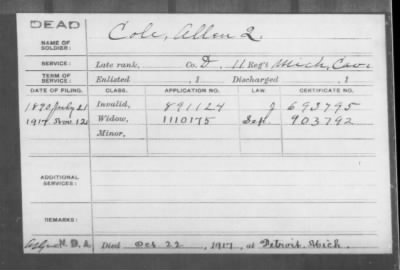 DEAD
NAME OF SOLDIER: Cole, Allen Q.
SERVICE: Late rank, Co. D, 11 Reg't Mich. Cav.
TERM OF SERVICE: Enlisted , 1 Discharged , 1
DATE OF FILING. CLASS. APPLICATION NO. LAW. CERTIFICATE NO.
1890 July 21 Invalid, 891124 J 693795
1917 Nov. 12 Widow, 1110175 903792
Minor,
ADDITIONAL SERVICES:
REMARKS:
Died Oct 22, 1917, at Detroit, Mich.